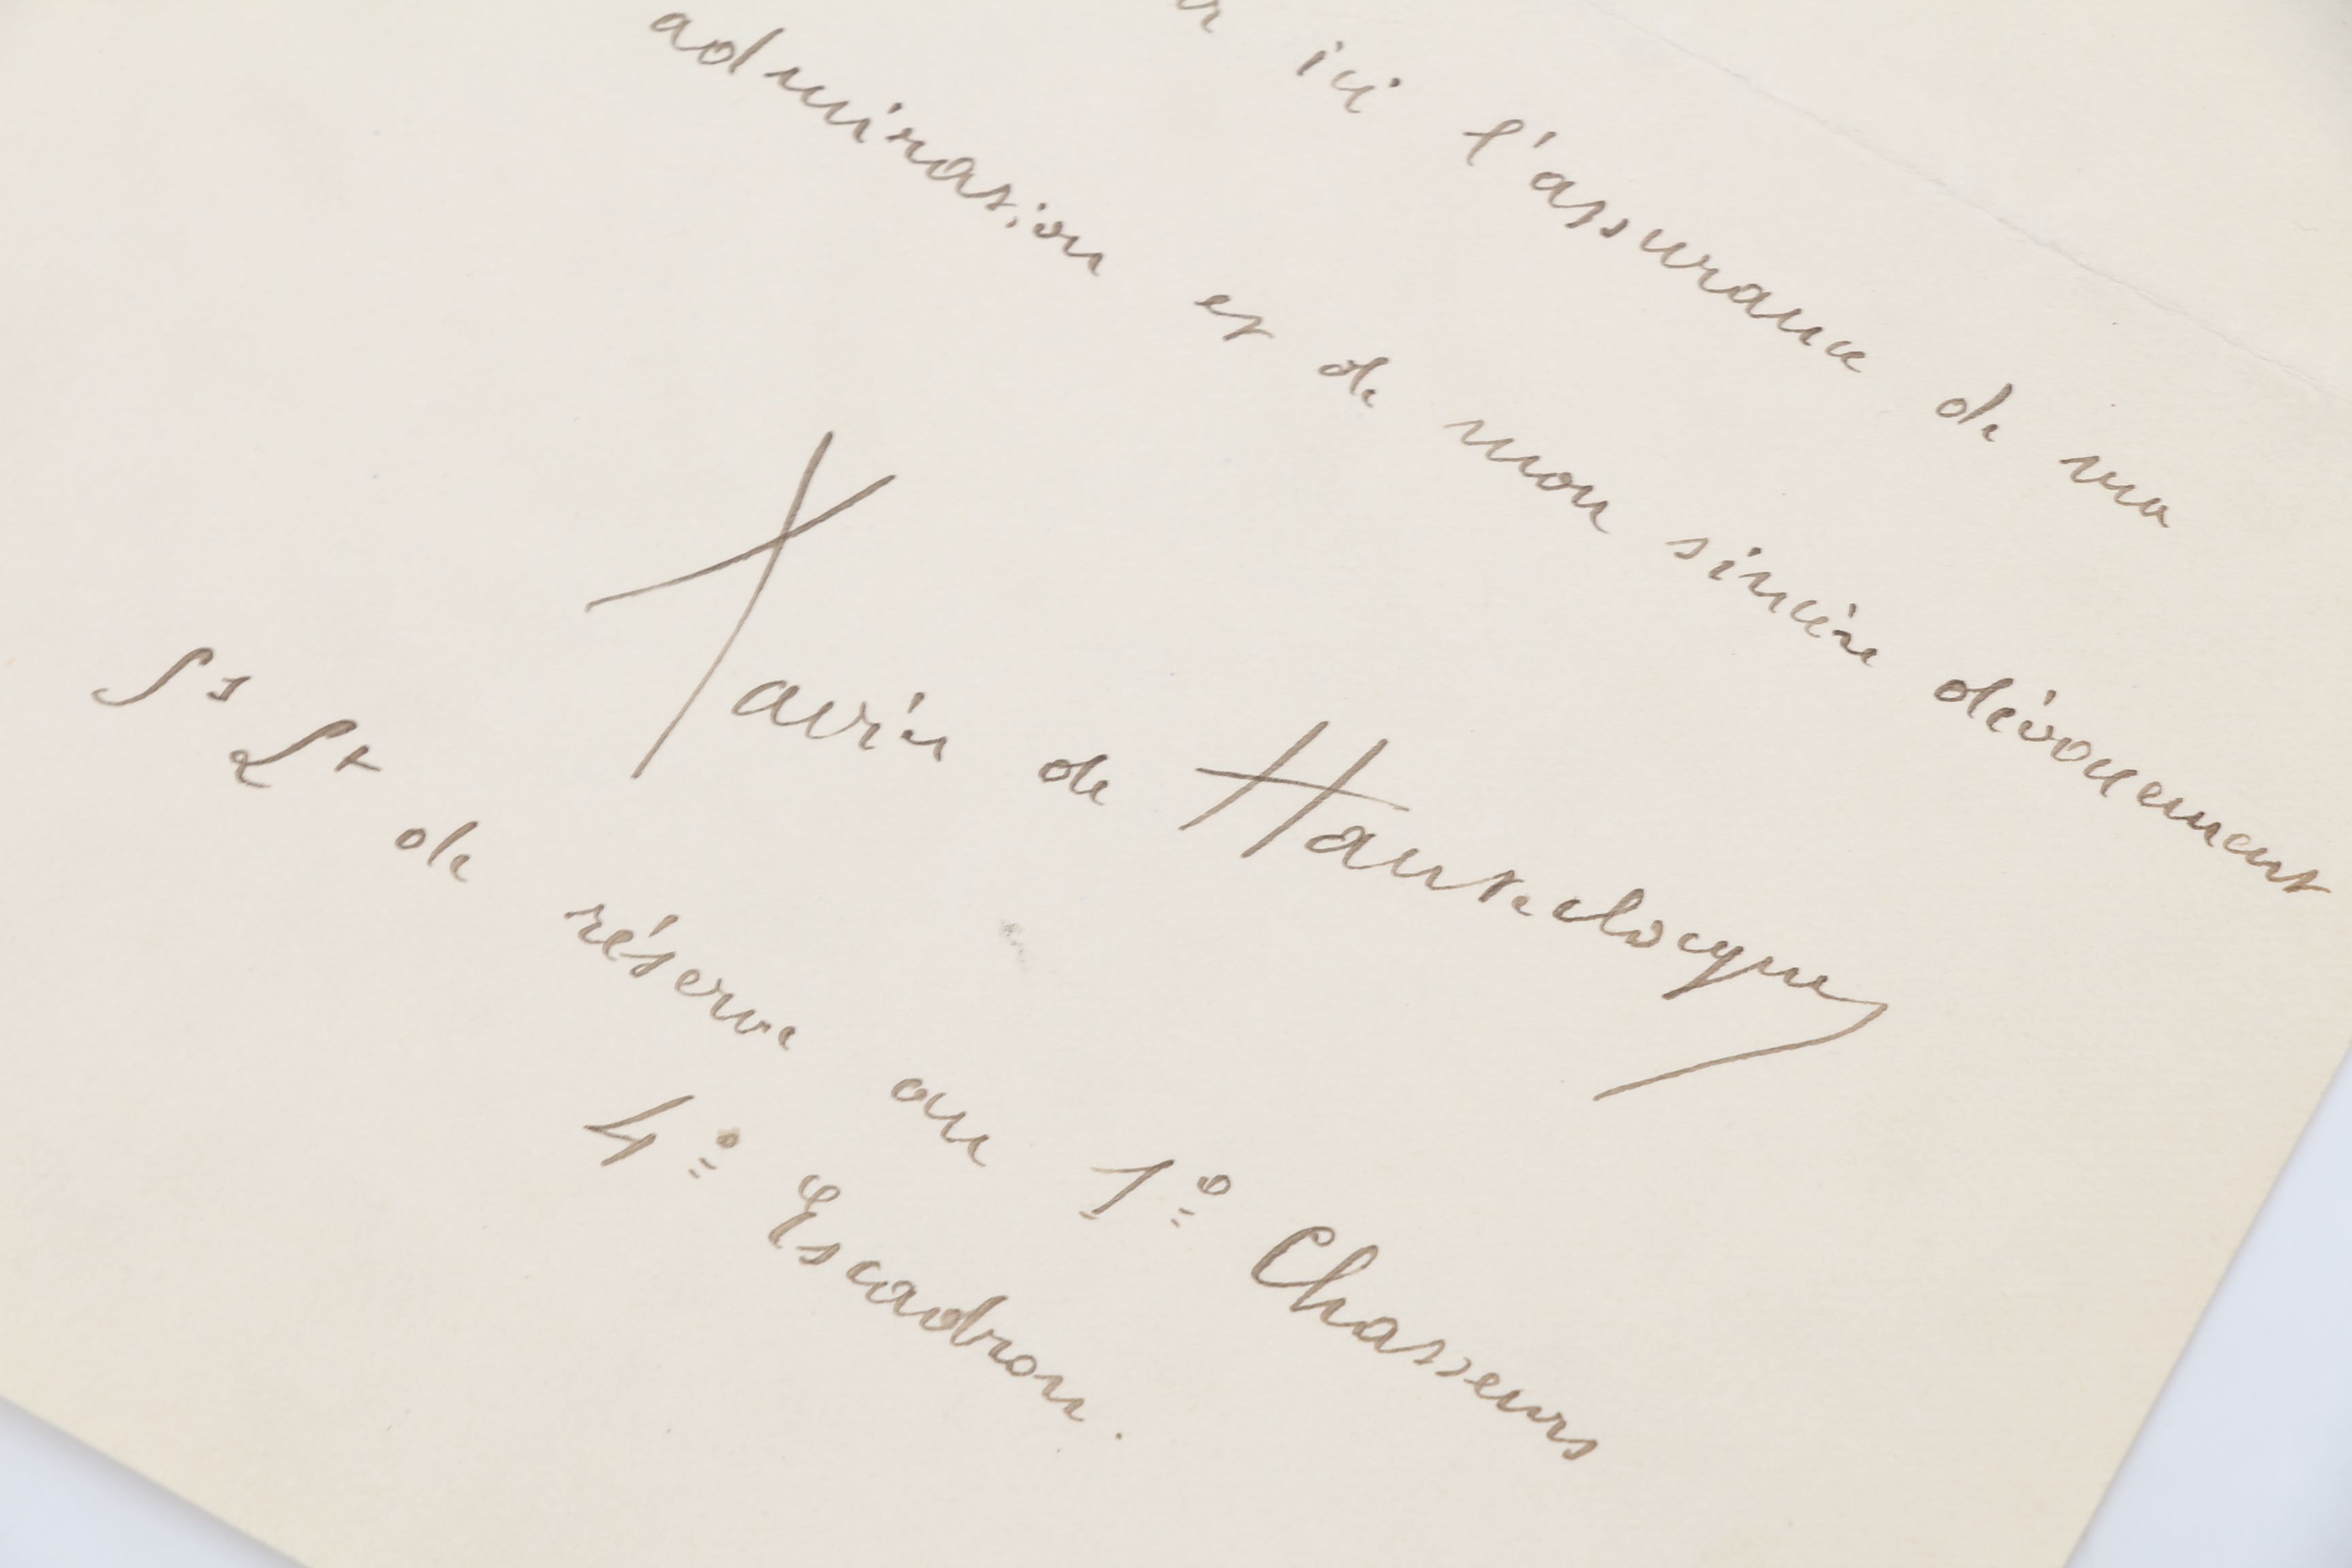 ici l'assurance de ma
admiration et de mon sincère dévouement
Xavier de Hauteclocque
Ss Lt de réserve au 1e Chasseurs
4e Escadron.